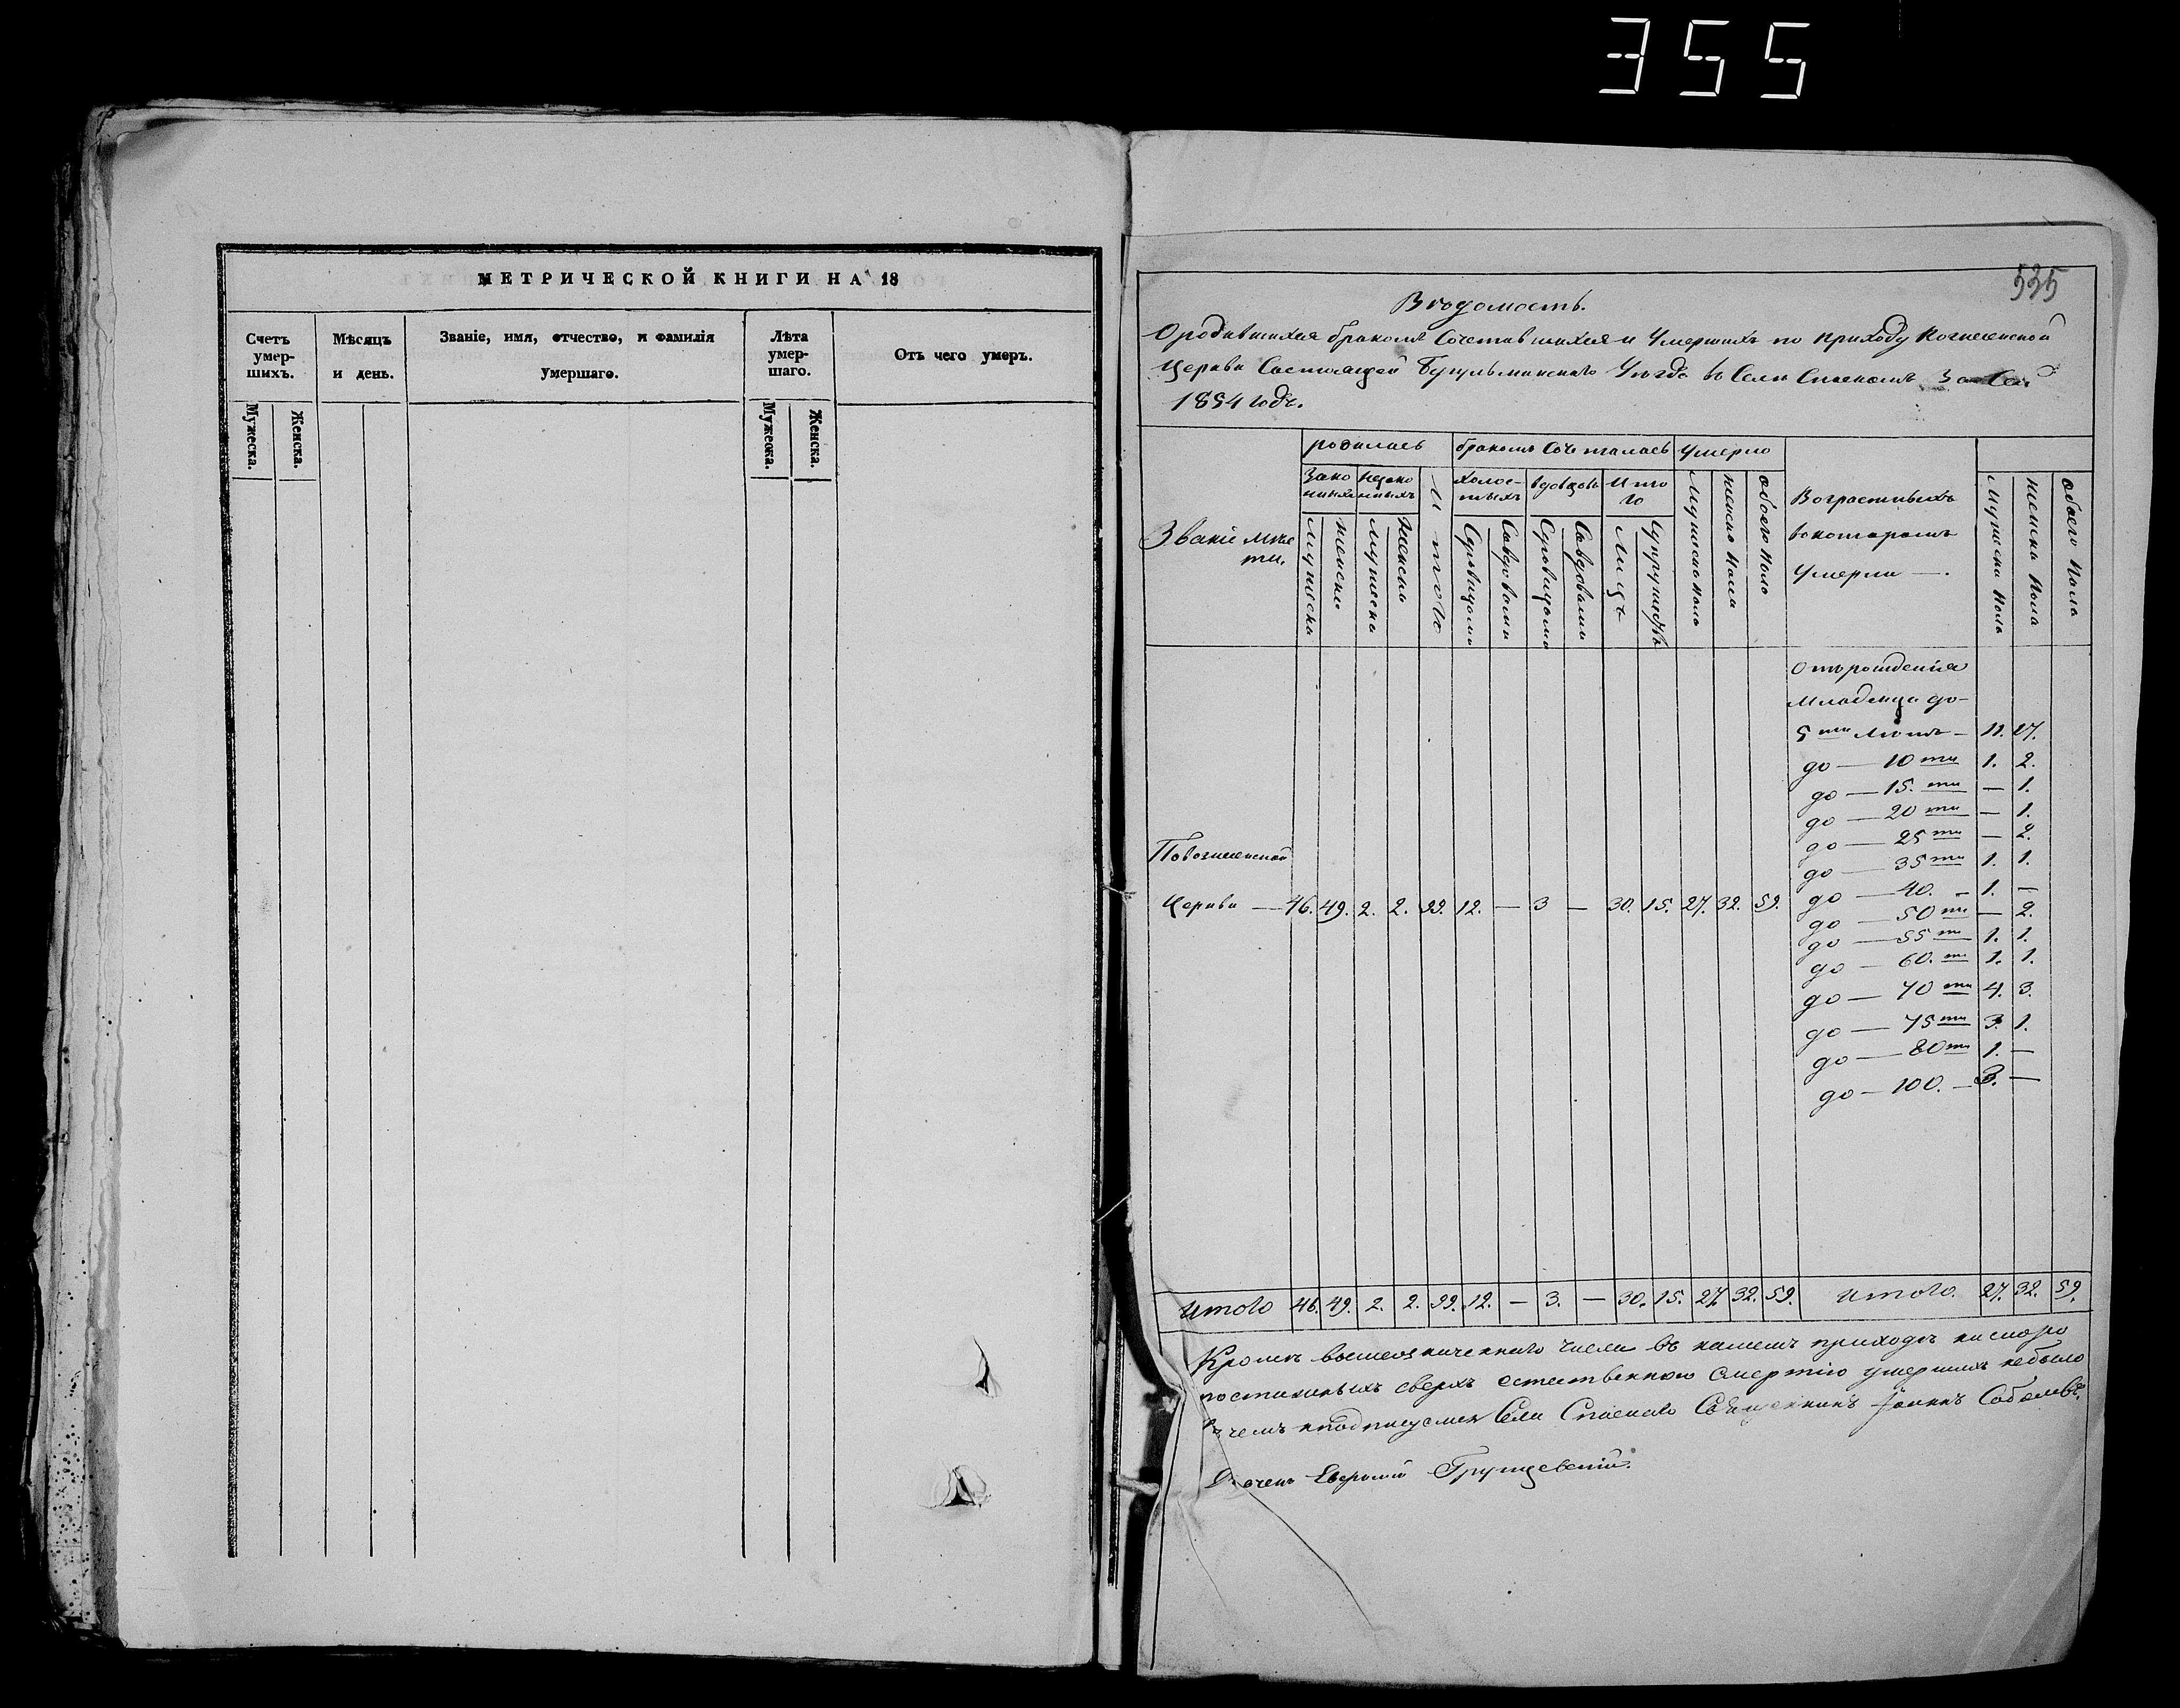 355
МЕТРИЧЕСКОЙ КНИГИ НА 18
Счетъ умер-шихъ.
Мѣсяцъ и день.
Званіе, имя, отчество, и фамилія умершаго.
Лѣта умер-шаго.
Отъ чего умеръ.
Мужеска.
Женска.
Мужеска.
Женска.
535
Вѣдомость.
О родившихся бракомъ Сочетавшихся и Умершихъ по приходу Вознесенской
Церкви Состоящей Бугульминскаго Уѣзда въ Селѣ Спаскомъ За
1854 годъ.
Званіе мѣс ти.
родилось
бракомъ Сочеталось
Умерло
зако нныхъ
незако нныхъ
Итого
холос- тыхъ
вдовцовъ
Ито го
мужеска
женска
мужеска
женска
Съ дѣвицами
Со вдовами
Съ дѣвицами
Со вдовами
Лицъ
Супружествъ
Мужеска пола
женска пола
обоего пола
Возрастъ ихъ
въ которомъ
Умерли —.
Мужеска пола
женска пола
обоего пола
Отъ рожденія
младенца до
5 ти лѣтъ — 11. 17.
до — 10 ти 1. 2.
до — 15. ти — 1.
до — 20 ти — 1.
до — 25 ти — 2.
до — 35 ти 1. 1.
до — 40. — 1. —
до — 50 ти — 2.
до — 55 ти 1. 1.
до — 60. ти 1. 1.
до — 70 ти 4. 3.
до — 75 ти 3. 1.
до — 80 ти 1. —
до — 100. — 3. —
По вознесенской
Церкви — 46. 49. 2. 2. 99. 12. — 3 — 30. 15. 27. 32. 59.
Итого 46. 49. 2. 2. 99. 12. — 3. — 30. 15. 27. 32. 59. Итого. 27. 32. 59.
Кромѣ вышеозначеннаго числа въ нашемъ приходѣ ни скоро
постижныхъ сверхъ естественною Смертію умершихъ небыло
въ чемъ и подписуемся Села Спаскаго Священникъ Іоаннъ Соболевъ.
Дьячекъ Грушевскій.